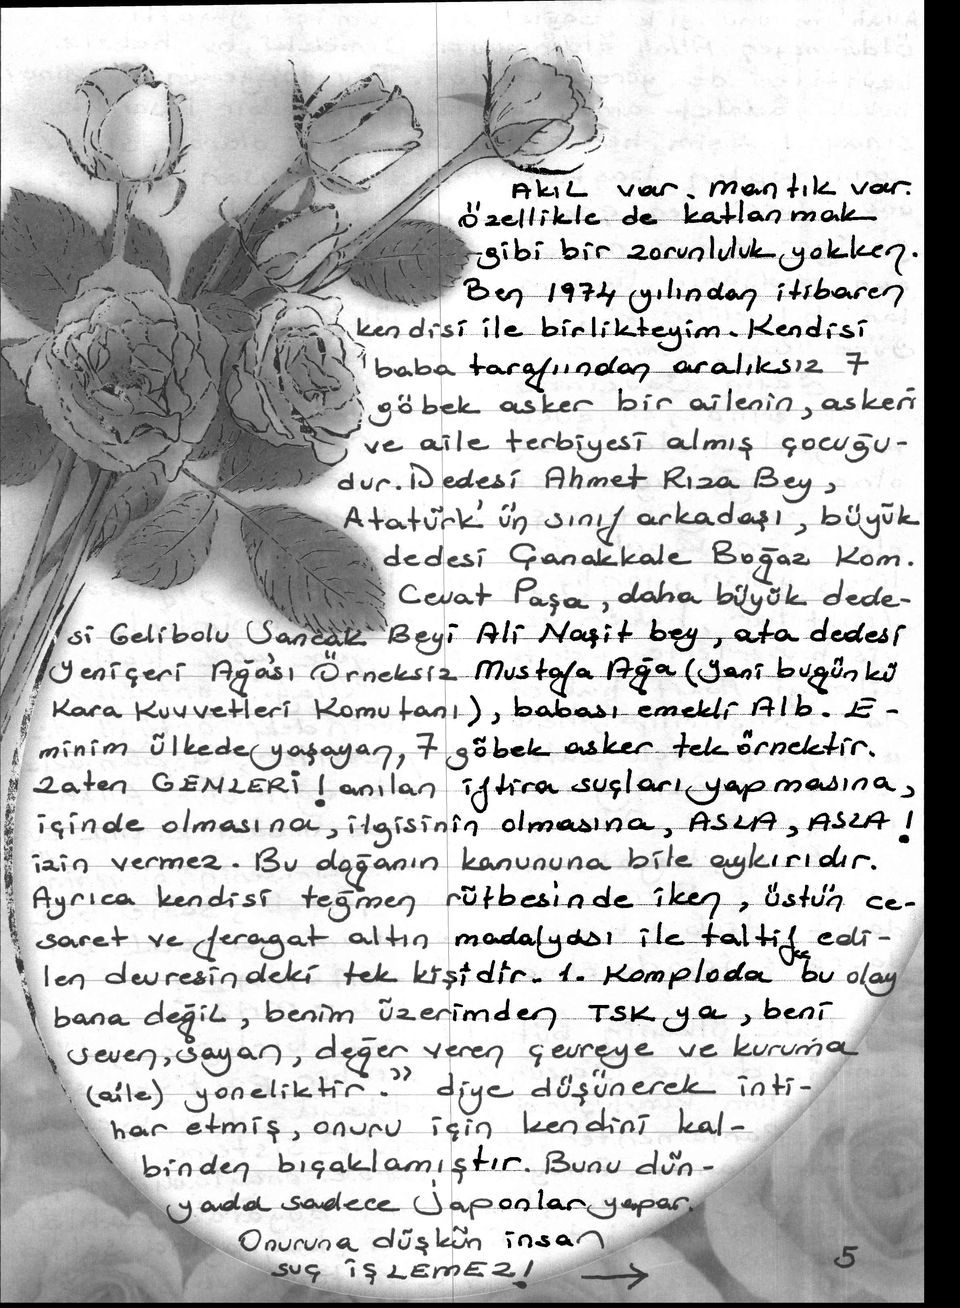 AKıL var. Mantık var.
özellikle de katlanmak
gibi bir zorunluluk yokken.
Ben 1974 yılından itibaren
kendisi ile birlikteyim. Kendisi
baba tarafıından aralıksız 7
göbek asker bir ailenin, askeri
ve aile terbiyesi almış çocuğu-
dur. Dedesi Ahmet Rıza Bey,
Atatürk'ün sınıf arkadaşı, büyük
dedesi Çanakkale Boğaz Kom.
Cevat Paşa, daha büyük dede-
si Gelibolu Sancak Beyi Ali Naşit bey, ata dedesi
Yeniçeri Ağası Örneksiz Mustafa Ağa (Yani bugünkü
Kara Kuvvetleri Komutanı), babası emekli Alb. E-
minim ülkede yaşayan, 7 göbek asker tek örnektir.
Zaten GENLERİ! anılan iftira suçları yapmasına,
içinde olmasına, ilgisinin olmasına, ASLA, ASLA!
izin vermez. Bu doğanın kanununa bile aykırıdır.
Ayrıca kendisi teğmen rütbesinde iken, üstün ce-
saret ve feragat altın madalyası ile taltif edi-
len devresindeki tek kişidir. 1. Komploda "bu olay
bana değil, benim üzerimden TSK ya, beni
seven, sayan, değer veren çevreye ve kuruma
(aile) yöneliktir." diye düşünerek inti-
har etmiş, onuru için kendini kal-
binden bıçaklamıştır. Bunu dün-
yada sadece Japonlar yapar.
Onuruna düşkün insan
suç İŞLEMEZ! →
5